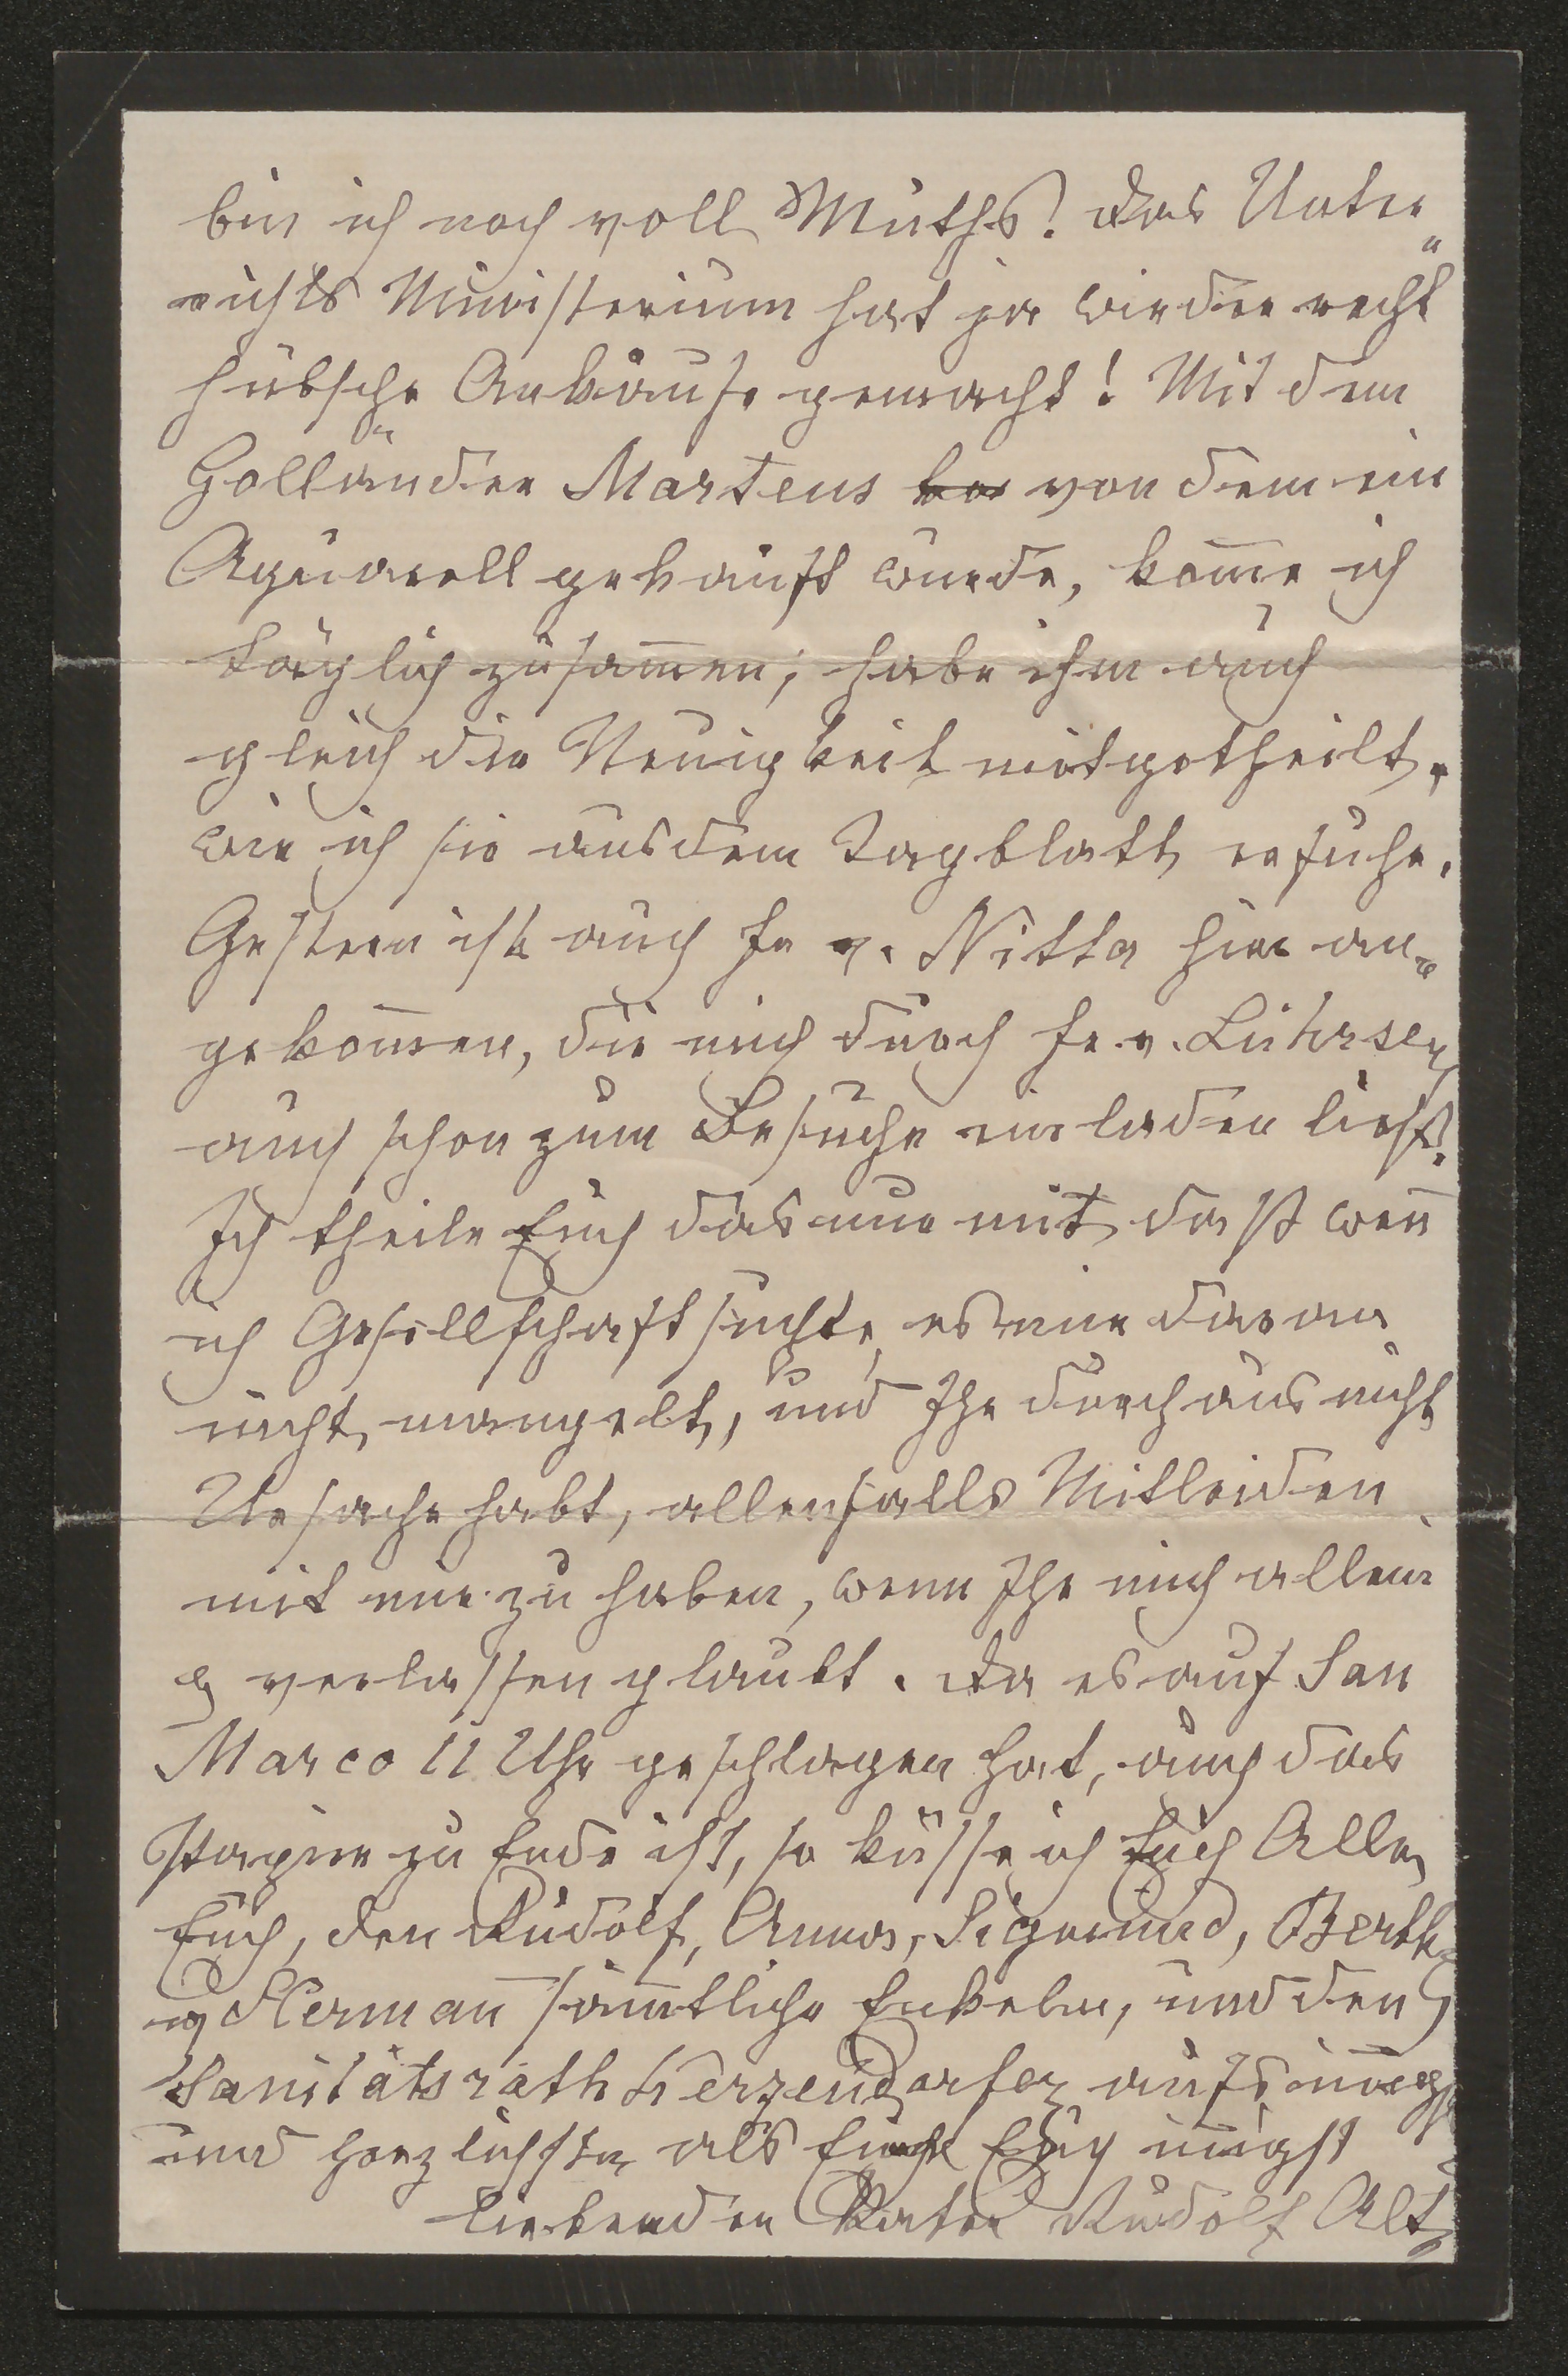 bin ich noch voll Muths! das Unter„
richts Ministerium hat ja wieder recht
hübsche Ankäufe gemacht! Mit dem
Holländer Martens von dem ein
Aquarell gekauft wurde, kom̄e ich
täglich zusam̄en; habe ihm auch
gleich die Neuigkeit mitgetheilt,
wie ich sie aus dem Tagblatt erfuhr.
Gestern ist auch Fr v. Nitta hier an„
gekom̄en, die mich durch Fr. v. Lührsen
auch schon zum Besuche einladen ließ.
Ich theile Euch das nur mit daß wen̄
ich Gesellschaft suchte, es mir daran
nicht mangelt, und Ihr durchaus nicht
Ursache habt, allenfalls Mitleiden
mit mir zu haben, wenn Ihr mich allein
& verlassen glaubt. da es auf San
Marco 11 Uhr geschlagen hat, auch das
Papier zu Ende ist, so küsse ich Euch Alle,
Euch, den Rudolf, Anna, Sigmund, Berth
& Herman̄ säm̄tliche Enkeln, und den
Sanitätsrath Kerzendorfer aufs
und herzlichste als Euch in̄igst
liebender Vater Rudolf Alt